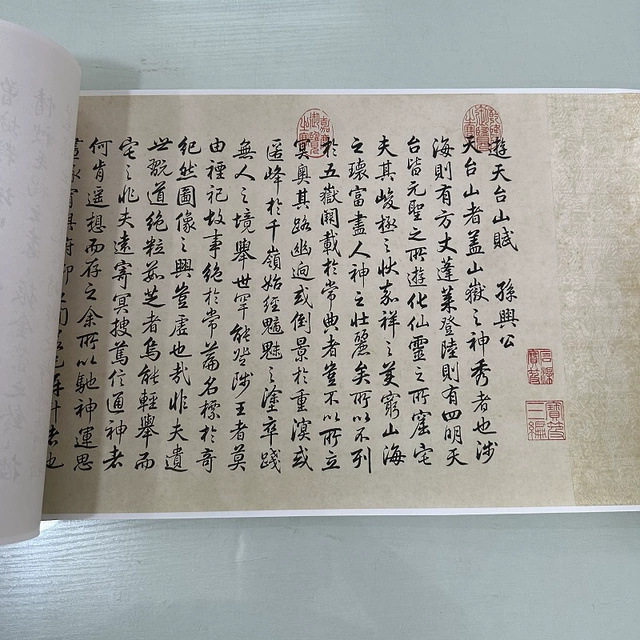 遊天台山賦 孫興公
天台山者蓋山嶽之神秀者也涉
海則有方丈蓬萊登陸則有四明天
台皆元聖之所遊化仙靈之所窟宅
夫其峻極之狀嘉祥之美窮山海
之瓌富盡人神之壯麗矣所以不列
於五嶽闕載於常典者豈不以所立
冥奧其路幽迥或倒景於重溟或
匿峰於千嶺始經魑魅之塗卒踐
無人之境舉世罕能登陟王者莫
由禋祀故事絕於常篇名標於奇
紀然圖像之興豈虛也哉非夫遺
世翫道絕粒茹芝者烏能輕舉而
宅之非夫遠寄冥搜篤信通神者
何肯遙想而存之余所以馳神運思
乾隆御覽之寶
嘉慶御覽之寶
石渠寶笈
寶笈三編